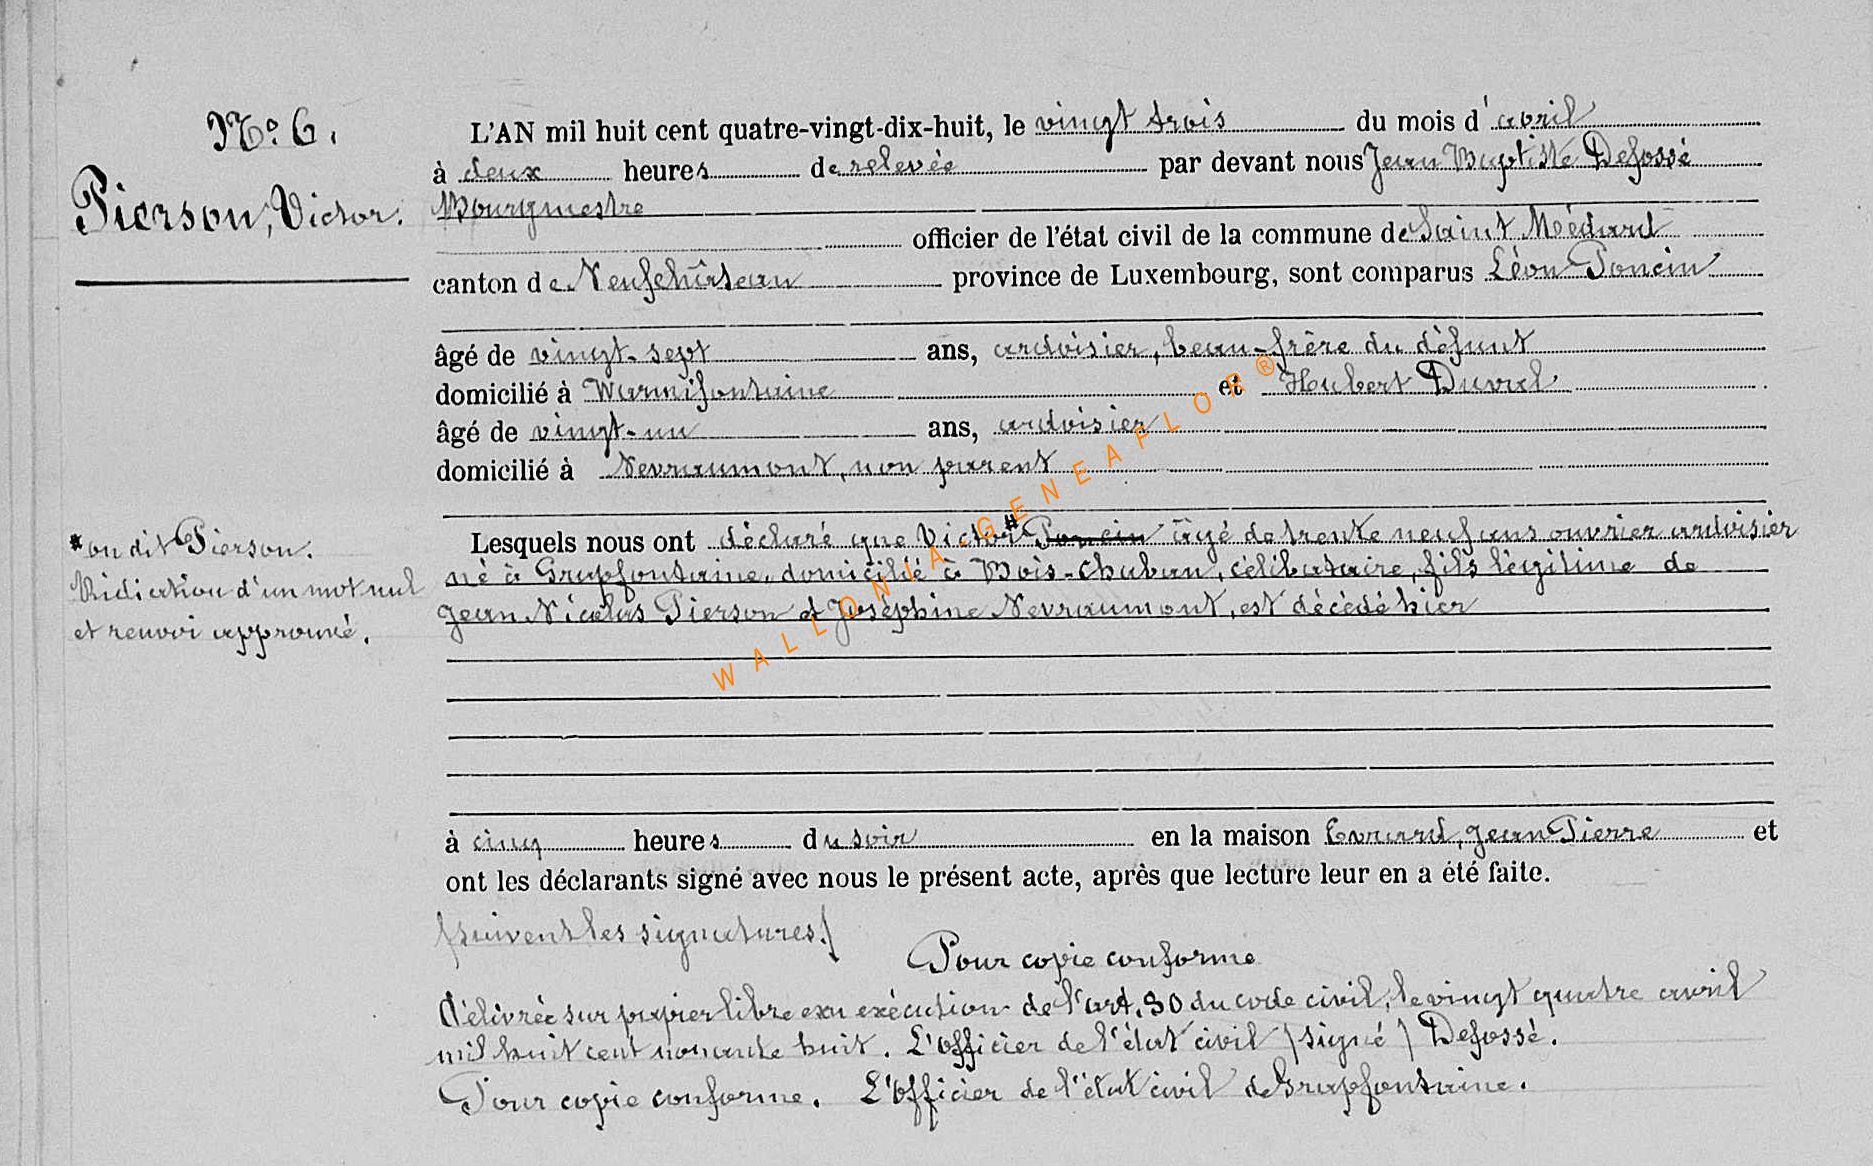 No. 6.
Pierson, Victor.
L'AN mil huit cent quatre-vingt-dix-huit, le vingt trois du mois d'avril
à deux heures de relevée par devant nous Jean Baptiste Defossé
Bourgmestre
officier de l'état civil de la commune de Saint Médard
canton de Neufchâteau province de Luxembourg, sont comparus Léon Poncin
âgé de vingt-sept ans, ardoisier, beau-frère du défunt
domicilié à Warmifontaine et Hubert Duval
âgé de vingt-un ans, ardoisier
domicilié à Nevraumont, non parent
Lesquels nous ont déclaré que Victor # Poncin âgé de trente neuf ans ouvrier ardoisier
né à Grapfontaine, domicilié à Bois-Chaban, célibataire, fils légitime de
Jean Nicolas Pierson et Joséphine Nevraumont, est décédé hier
# on dit Pierson.
d'un mot nul
et renvoi approuvé.
à cinq heures du soir en la maison Evrard, Jean Pierre et
ont les déclarants signé avec nous le présent acte, après que lecture leur en a été faite.
(suivent les signatures.)
Pour copie conforme
Délivrée sur papier libre en exécution de l'art. 80 du code civil, le vingt quatre avril
mil huit cent nonante huit. L'officier de l'état civil (signé) Defossé.
Pour copie conforme. L'Officier de l'état civil de Grapfontaine.
WALLONIA-GENEAFLOR®